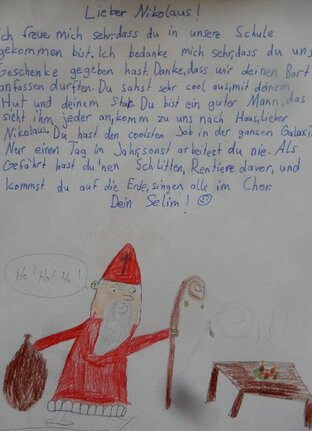 Lieber Nikolaus!
ich freue mich sehr, dass du in unsere Schule
gekommen bist. Ich bedanke mich sehr, dass du uns
geschenke gegeben hast. Danke, dass wir deinen Bart
anfassen durften. Du sahst sehr cool aus, mit deinem
Hut und deinem Stab. Du bist ein guter Mann, das
sieht ihm jeder an, komm zu uns nach Haas, lieber
Nikolaus. Du hast den coolsten Job in der ganzen Galaxi
Nur einen Tag im Jahr, sonst arbeitest du nie. Als
Gefährt hast du 'nen Schlitten, Rentiere davor, und
kommst du auf die Erde, singen alle im Chor
Dein Selim!
Ho! Ho! Ho!